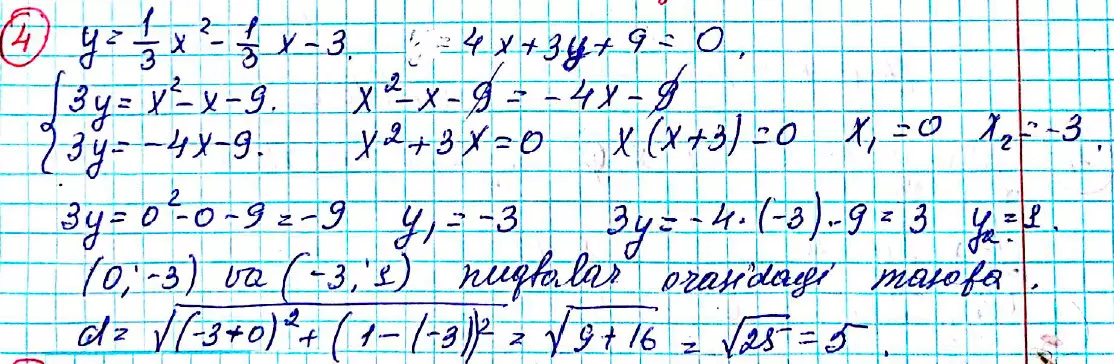 ④ y = 1/3 x² - 1/3 x - 3. = 4x + 3y + 9 = 0.
{ 3y = x² - x - 9. x² - x - 9 = -4x - 9
3y = -4x - 9. x² + 3x = 0 x(x+3) = 0 x₁ = 0 x₂ = -3.
3y = 0² - 0 - 9 = -9 y₁ = -3 3y = -4·(-3) - 9 = 3 y₂ = 1.
(0; -3) va (-3; 1) nuqtalar orasidagi masofa.
d = √((-3+0)² + (1-(-3))²) = √(9+16) = √25 = 5.